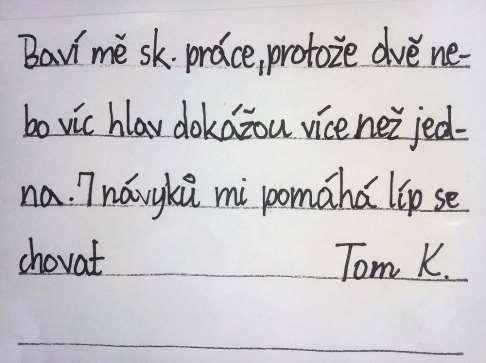 Baví mě sk. práce, protože dvě ne-
bo víc hlav dokážou více než jed-
na. 7 návyků mi pomáhá líp se
chovat Tom K.